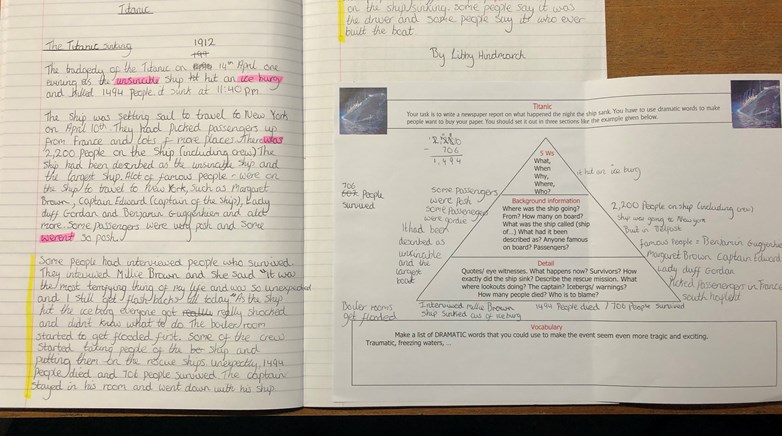 Titanic
The Titanic sinking 1912
The tradgedy of the Titanic on 14th April one
evening as the unsincible ship hit an ice burg
and killed 1494 people. it sunk at 11:40 pm.
The ship was setting sail to travel to New York
on April 10th. They had picked passengers up
from France and lots more places. There was
2,200 people on the ship (including crew) The
ship had been described as the unsincable ship and
the largest ship. Alot of famous people were on
the ship to travel to New York, such as Margaret
Brown, Captain Edward (captain of the ship), Lady
duff Gordan and Benjamin Guggenhien and alot
more. Some passengers were very posh and some
weren't so posh.
Some people had interviewed people who survived.
They interviewed Millie Brown and she said "it was
the most terrifying thing of my life and was so unexpected
and I still get flash backs till today" As the ship
hit the ice burg everyone got really shocked
and didnt know what to do The boiler room
started to get flooded first. Some of the crew
started taking people of the ship and
putting them on the rescue ships unexpectly. 1494
people died and 706 people survived The captain
stayed in his room and went down with his ship
on the ship sinking. some people say it was
the driver and some people say it who ever
built the boat
By Libby Hindmarch
Titanic
Your task is to write a newspaper report on what happened the night the ship sank. You have to use dramatic words to make
people want to buy your paper. You should set it out in three sections like the example given below.
- 706
1,494
5 Ws
What,
When
Why,
Where,
Who?
it hit an ice burg
706 People
survived
Some passengers
were posh
some Passengers
were
It had been
described as
unsincable
and the
largest
boat
Background information
Where was the ship going?
From? How many on board?
What was the ship called (ship
of...) What had it been
described as? Anyone famous
on board? Passengers?
2,200 People on ship (including crew)
ship was going to New york
Built in Belfast
famous people = Benjamin Guggenhien
Margaret Brown Captain Edward
Lady duff Gordan
Picked Passengers in France
south
Detail
Quotes/ eye witnesses. What happens now? Survivors? How
exactly did the ship sink? Describe the rescue mission. What
where lookouts doing? The captain? Icebergs/ warnings?
How many people died? Who is to blame?
Boiler rooms
get flooded
Interviewed millie Brown 1494 People died / 706 People survived
Ship sunked cus of iceburg
Vocabulary
Make a list of DRAMATIC words that you could use to make the event seem even more tragic and exciting.
Traumatic, freezing waters, ...